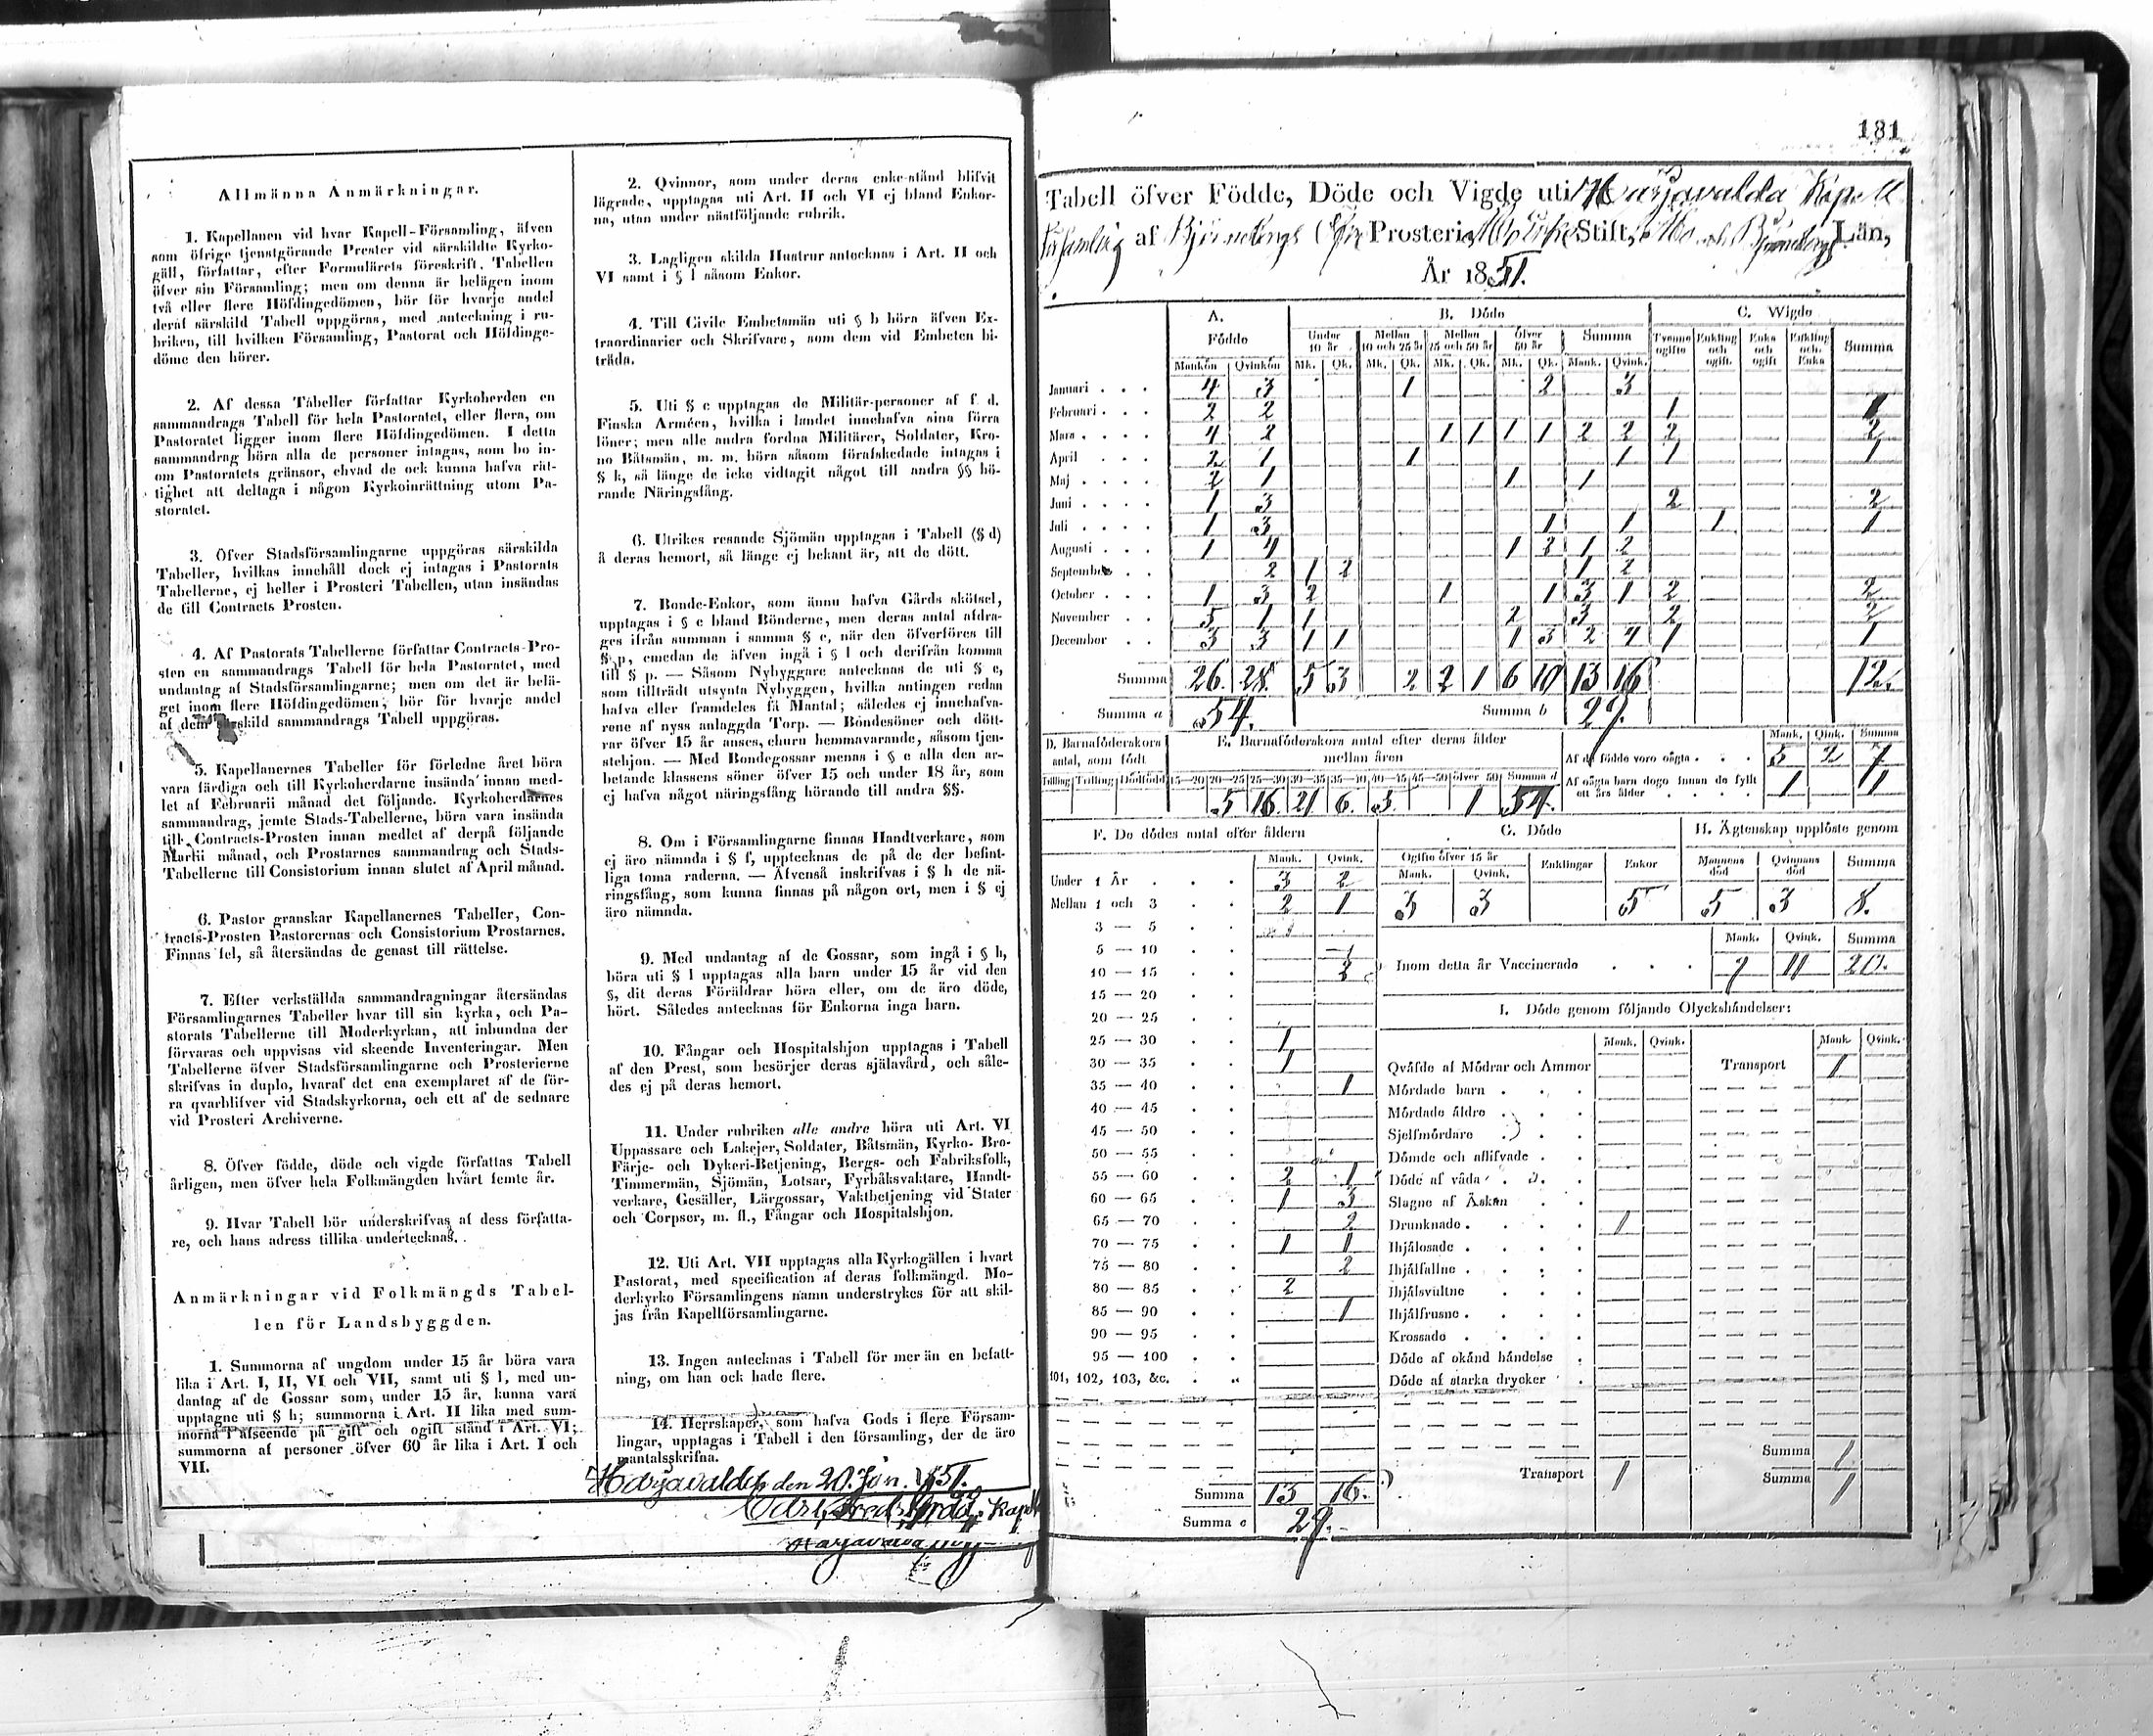 Allmänna Anmärkningar.
1. Kapellanen vid hvar Kapell-Församling, äfven
som öfrige tjenstgörande Prester vid särskildte Kyrko-
gäll, författar, efter Formulärets föreskrift, Tabellen
öfver sin Församling; men om denna är belägen inom
två eller flere Höfdingedömen, bör för hvarje andel
deraf särskild Tabell uppgöras, med anteckning i ru-
briken, till hvilken Församling, Pastorat och Höfdinge-
döme den hörer.
2. Af dessa Tabeller författar Kyrkoherden en
sammandrags Tabell för hela Pastoratet, eller flera, om
Pastoratet ligger inom flere Höfdingedömen. I detta
sammandrag böra alla de personer intagas, som bo in-
om Pastoratets gränsor, ehvad de ock kunna hafva rät-
tighet att deltaga i någon Kyrkoinrättning utom Pa-
storatet.
3. Öfver Stadsförsamlingarne uppgöras särskilda
Tabeller, hvilkas innehåll dock ej intagas i Pastorats
Tabellerne, ej heller i Prosteri Tabellen, utan insändas
de till Contracts Prosten.
4. Af Pastorats Tabellerne författar Contracts-Pro-
sten en sammandrags Tabell för hela Pastoratet, med
undantag af Stadsförsamlingarne; men om det är belä-
get inom flere Höfdingedömen, bör för hvarje andel
af dem särskild sammandrags Tabell uppgöras.
5. Kapellanernes Tabeller för förledne året böra
vara färdiga och till Kyrkoherdarne insända innan med-
let af Februarii månad det följande. Kyrkoherdarnes
sammandrag, jemte Stads-Tabellerne, böra vara insända
till Contracts-Prosten innan medlet af derpå följande
Martii månad, och Prostarnes sammandrag och Stads-
Tabellerne till Consistorium innan slutet af April månad.
6. Pastor granskar Kapellanernes Tabeller, Con-
tracts-Prosten Pastorernas och Consistorium Prostarnes.
Finnas fel, så återsändas de genast till rättelse.
7. Efter verkställda sammandragningar återsändas
Församlingarnes Tabeller hvar till sin kyrka, och Pa-
storats Tabellerne till Moderkyrkan, att inbundna der
förvaras och uppvisas vid skeende Inventeringar. Men
Tabellerne öfver Stadsförsamlingarne och Prosterierne
skrifvas in duplo, hvaraf det ena exemplaret af de för-
ra qvarblifver vid Stadskyrkorna, och ett af de sednare
vid Prosteri Archiverne.
8. Öfver födde, döde och vigde författas Tabell
årligen, men öfver hela Folkmängden hvart femte år.
9. Hvar Tabell bör underskrifvas af dess författa-
re, och hans adress tillika undertecknas.
Anmärkningar vid Folkmängds Tabel-
len för Landsbyggden.
1. Summorna af ungdom under 15 år böra vara
lika i Art. I, II, VI och VII, samt uti § l, med un-
dantag af de Gossar som, under 15 år, kunna vara
upptagne uti § h; summorna i Art. II lika med sum-
morna i afseende på gift och ogift stånd i Art. VI;
summorna af personer öfver 60 år lika i Art. I och
VII.
2. Qvinnor, som under deras enke-stånd blifvit
lägrade, upptagas uti Art. II och VI ej bland Enkor-
na, utan under nästföljande rubrik.
3. Lagligen skilda Hustrur antecknas i Art. II och
VI samt i § l såsom Enkor.
4. Till Civile Embetsmän uti § b höra äfven Ex-
traordinarier och Skrifvare, som dem vid Embeten bi-
träda.
5. Uti § c upptagas de Militär-personer af f. d.
Finska Arméen, hvilka i landet innehafva sina förra
löner; men alle andra fordna Militärer, Soldater, Kro-
no Båtsmän, m. m. böra såsom förafskedade intagas i
§ k, så länge de icke vidtagit något till andra §§ hö-
rande Näringsfång.
6. Utrikes resande Sjömän upptagas i Tabell (§ d)
å deras hemort, så länge ej bekant är, att de dött.
7. Bonde-Enkor, som ännu hafva Gårds skötsel,
upptagas i § e bland Bönderne, men deras antal afdra-
ges ifrån summan i samma § e, när den öfverföres till
§ p, emedan de äfven ingå i § l och derifrån komma
till § p. — Såsom Nybyggare antecknas de uti § e,
som tillträdt utsynta Nybyggen, hvilka antingen redan
hafva eller framdeles få Mantal; således ej innehafva-
rene af nyss anlaggda Torp. — Bondesöner och dött-
rar öfver 15 år anses, ehuru hemmavarande, såsom tjen-
stehjon. — Med Bondegossar menas i § e alla den ar-
betande klassens söner öfver 15 och under 18 år, som
ej hafva något näringsfång hörande till andra §§.
8. Om i Församlingarne finnas Handtverkare, som
ej äro nämnda i § f, upptecknas de på de der befint-
liga toma raderna. — Äfvenså inskrifvas i § h de nä-
ringsfång, som kunna finnas på någon ort, men i § ej
äro nämnda.
9. Med undantag af de Gossar, som ingå i § h,
böra uti § l upptagas alla barn under 15 år vid den
§, dit deras Föräldrar höra eller, om de äro döde,
hört. Således antecknas för Enkorna inga barn.
10. Fångar och Hospitalshjon upptagas i Tabell
af den Prest, som besörjer deras själavård, och såle-
des ej på deras hemort.
11. Under rubriken alle andre höra uti Art. VI
Uppassare och Lakejer, Soldater, Båtsmän, Kyrko- Bro-
Färje- och Dykeri-Betjening, Bergs- och Fabriksfolk,
Timmermän, Sjömän, Lotsar, Fyrbåksvaktare, Handt-
verkare, Gesäller, Lärgossar, Vaktbetjening vid Stater
och Corpser, m. fl., Fångar och Hospitalshjon.
12. Uti Art. VII upptagas alla Kyrkogällen i hvart
Pastorat, med specification af deras folkmängd. Mo-
derkyrko Församlingens namn understrykes för att skil-
jas från Kapellförsamlingarne.
13. Ingen antecknas i Tabell för mer än en befatt-
ning, om han ock hade flere.
14. Herrskaper, som hafva Gods i flere Försam-
lingar, upptagas i Tabell i den församling, der de äro
mantalsskrifna.
Harjavalda den 20. Jan. 1851.
Carl Fred. Kapell
Harjavalda
181
Tabell öfver Födde, Döde och Vigde uti Harjavalda Kapell
Församling af Björneborgs Prosteri, Åbo Stift, Åbo och Björneborgs Län,
År 1851.
A. B. Döde C. Wigde
Födde Under 10 år Mellan 10 och 25 år Mellan 25 och 50 år öfver 50 år Summa Tvenne ogifte Enkling och ogift. Enka och ogift Enkling och Enka Summa
Mankön Qvinkön Mk. Qk. Mk. Qk. Mk. Qk. Mk. Qk. Mank. Qvink.
Januari 4 3 1 2 3
Februari 2 2 1
Mars 4 2 1 1 1 1 2 2 2 2
April 2 1 1 1 1 1
Maj 2 1 1 1
Juni 1 3 2 2
Juli 1 3 1 1 1 1
Augusti 1 4 1 2 1 2
September 2 1 2 1 2
October 1 3 2 1 1 3 1 2 2
November 5 1 1 2 3 2 2
December 3 3 1 1 1 3 2 4 1 1
Summa 26. 28. 5 3 2 2 1 6 10 13 16 12.
Summa a 54. Summa b 29.
D. Barnaföderskors antal, som födt
Tvilling Trilling Dödfödd
E. Barnaföderskors antal efter deras ålder
mellan åren
15—20 20—25 25—30 30—35 35—40 40—45 45—50 öfver 50 Summa d
5 16 21 6. 3. 1 54.
Mank. Qink. Summa
Af de födde voro oägta 5 2 7
Af oägta barn dogo innan de fyllt
ett års ålder 1 1
F. De dödes antal efter åldern
Mank. Qvink.
Under 1 År 3 2
Mellan 1 och 3 2 1
3 — 5
5 — 10
10 — 15 2
15 — 20
20 — 25
25 — 30 1
30 — 35 1
35 — 40 1
40 — 45
45 — 50
50 — 55
55 — 60 2 1
60 — 65 1 3
65 — 70 2
70 — 75 1 1
75 — 80 2
80 — 85 2
85 — 90 1
90 — 95
95 — 100
101, 102, 103, &c.
Summa 13 16.
Summa e 29.
G. Döde
Ogifte öfver 15 år Enklingar Enkor
Mank. Qvink.
3 3 5
H. Ägtenskap upplöste genom
Mannens död Qvinnans död Summa
5 3 8.
Mank. Qvink. Summa
Inom detta år Vaccinerade 9 11 20.
I. Döde genom följande Olyckshändelser:
Mank. Qvink. Mank. Qvink.
Qväfde af Mödrar och Ammor Transport 1
Mördade barn
Mördade äldre
Sjelfmördare
Dömde och aflifvade
Döde af våda
Slagne af Åskan
Drunknade 1
Ihjälosade
Ihjälfallne
Ihjälsvultne
Ihjälfrusne
Krossade
Döde af okänd händelse
Döde af starka drycker
Summa 1
Transport 1 Summa 1